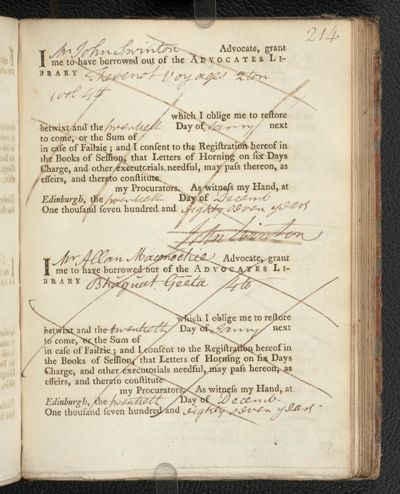 214
I Mr John Swinton Advocate, grant
me to have borrowed out of the ADVOCATES LI-
BRARY Thevenot Voyages 2 ton
vol 4to
which I oblige me to reſtore
betwixt and the twentieth Day of Janry next
to come, or the Sum of
in caſe of Failzie; and I conſent to the Regiſtration hereof in
the Books of Seſſion, that Letters of Horning on ſix Days
Charge, and other executorials needful, may paſs thereon, as
effeirs, and thereto conſtitute
my Procurators. As witneſs my Hand, at
Edinburgh, the twentieth Day of Decemb
One thouſand ſeven hundred and eighty seven years
John Swinton
I Mr Allan Maconochie Advocate, grant
me to have borrowed out of the ADVOCATES LI-
BRARY Bhaguat Geeta 4to
which I oblige me to reſtore
betwixt and the twentieth Day of Janry next
to come, or the Sum of
in caſe of Failzie; and I conſent to the Regiſtration hereof in
the Books of Seſſion, that Letters of Horning on ſix Days
Charge, and other executorials needful, may paſs thereon, as
effeirs, and thereto conſtitute
my Procurators. As witneſs my Hand, at
Edinburgh, the twentieth Day of Decemb.
One thouſand ſeven hundred and eighty seven years.